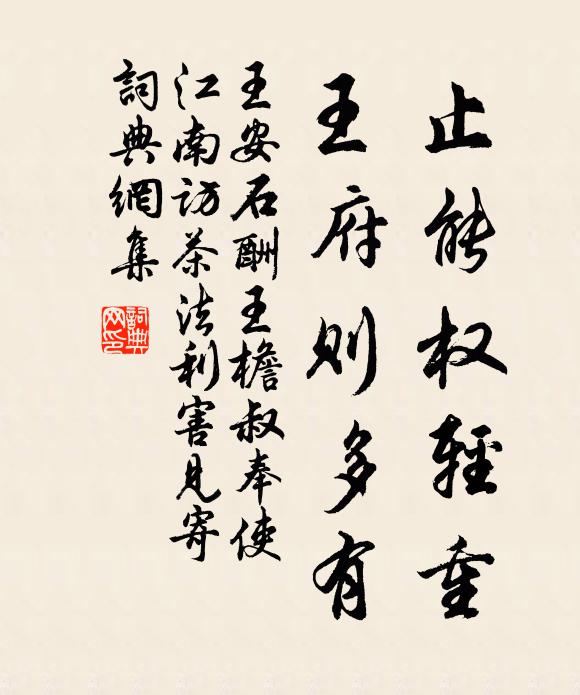 止能权輕重
王府则多有
王安石酬王檐叔奉使
江南访茶法利害見寄
詞典網集
詞典网印